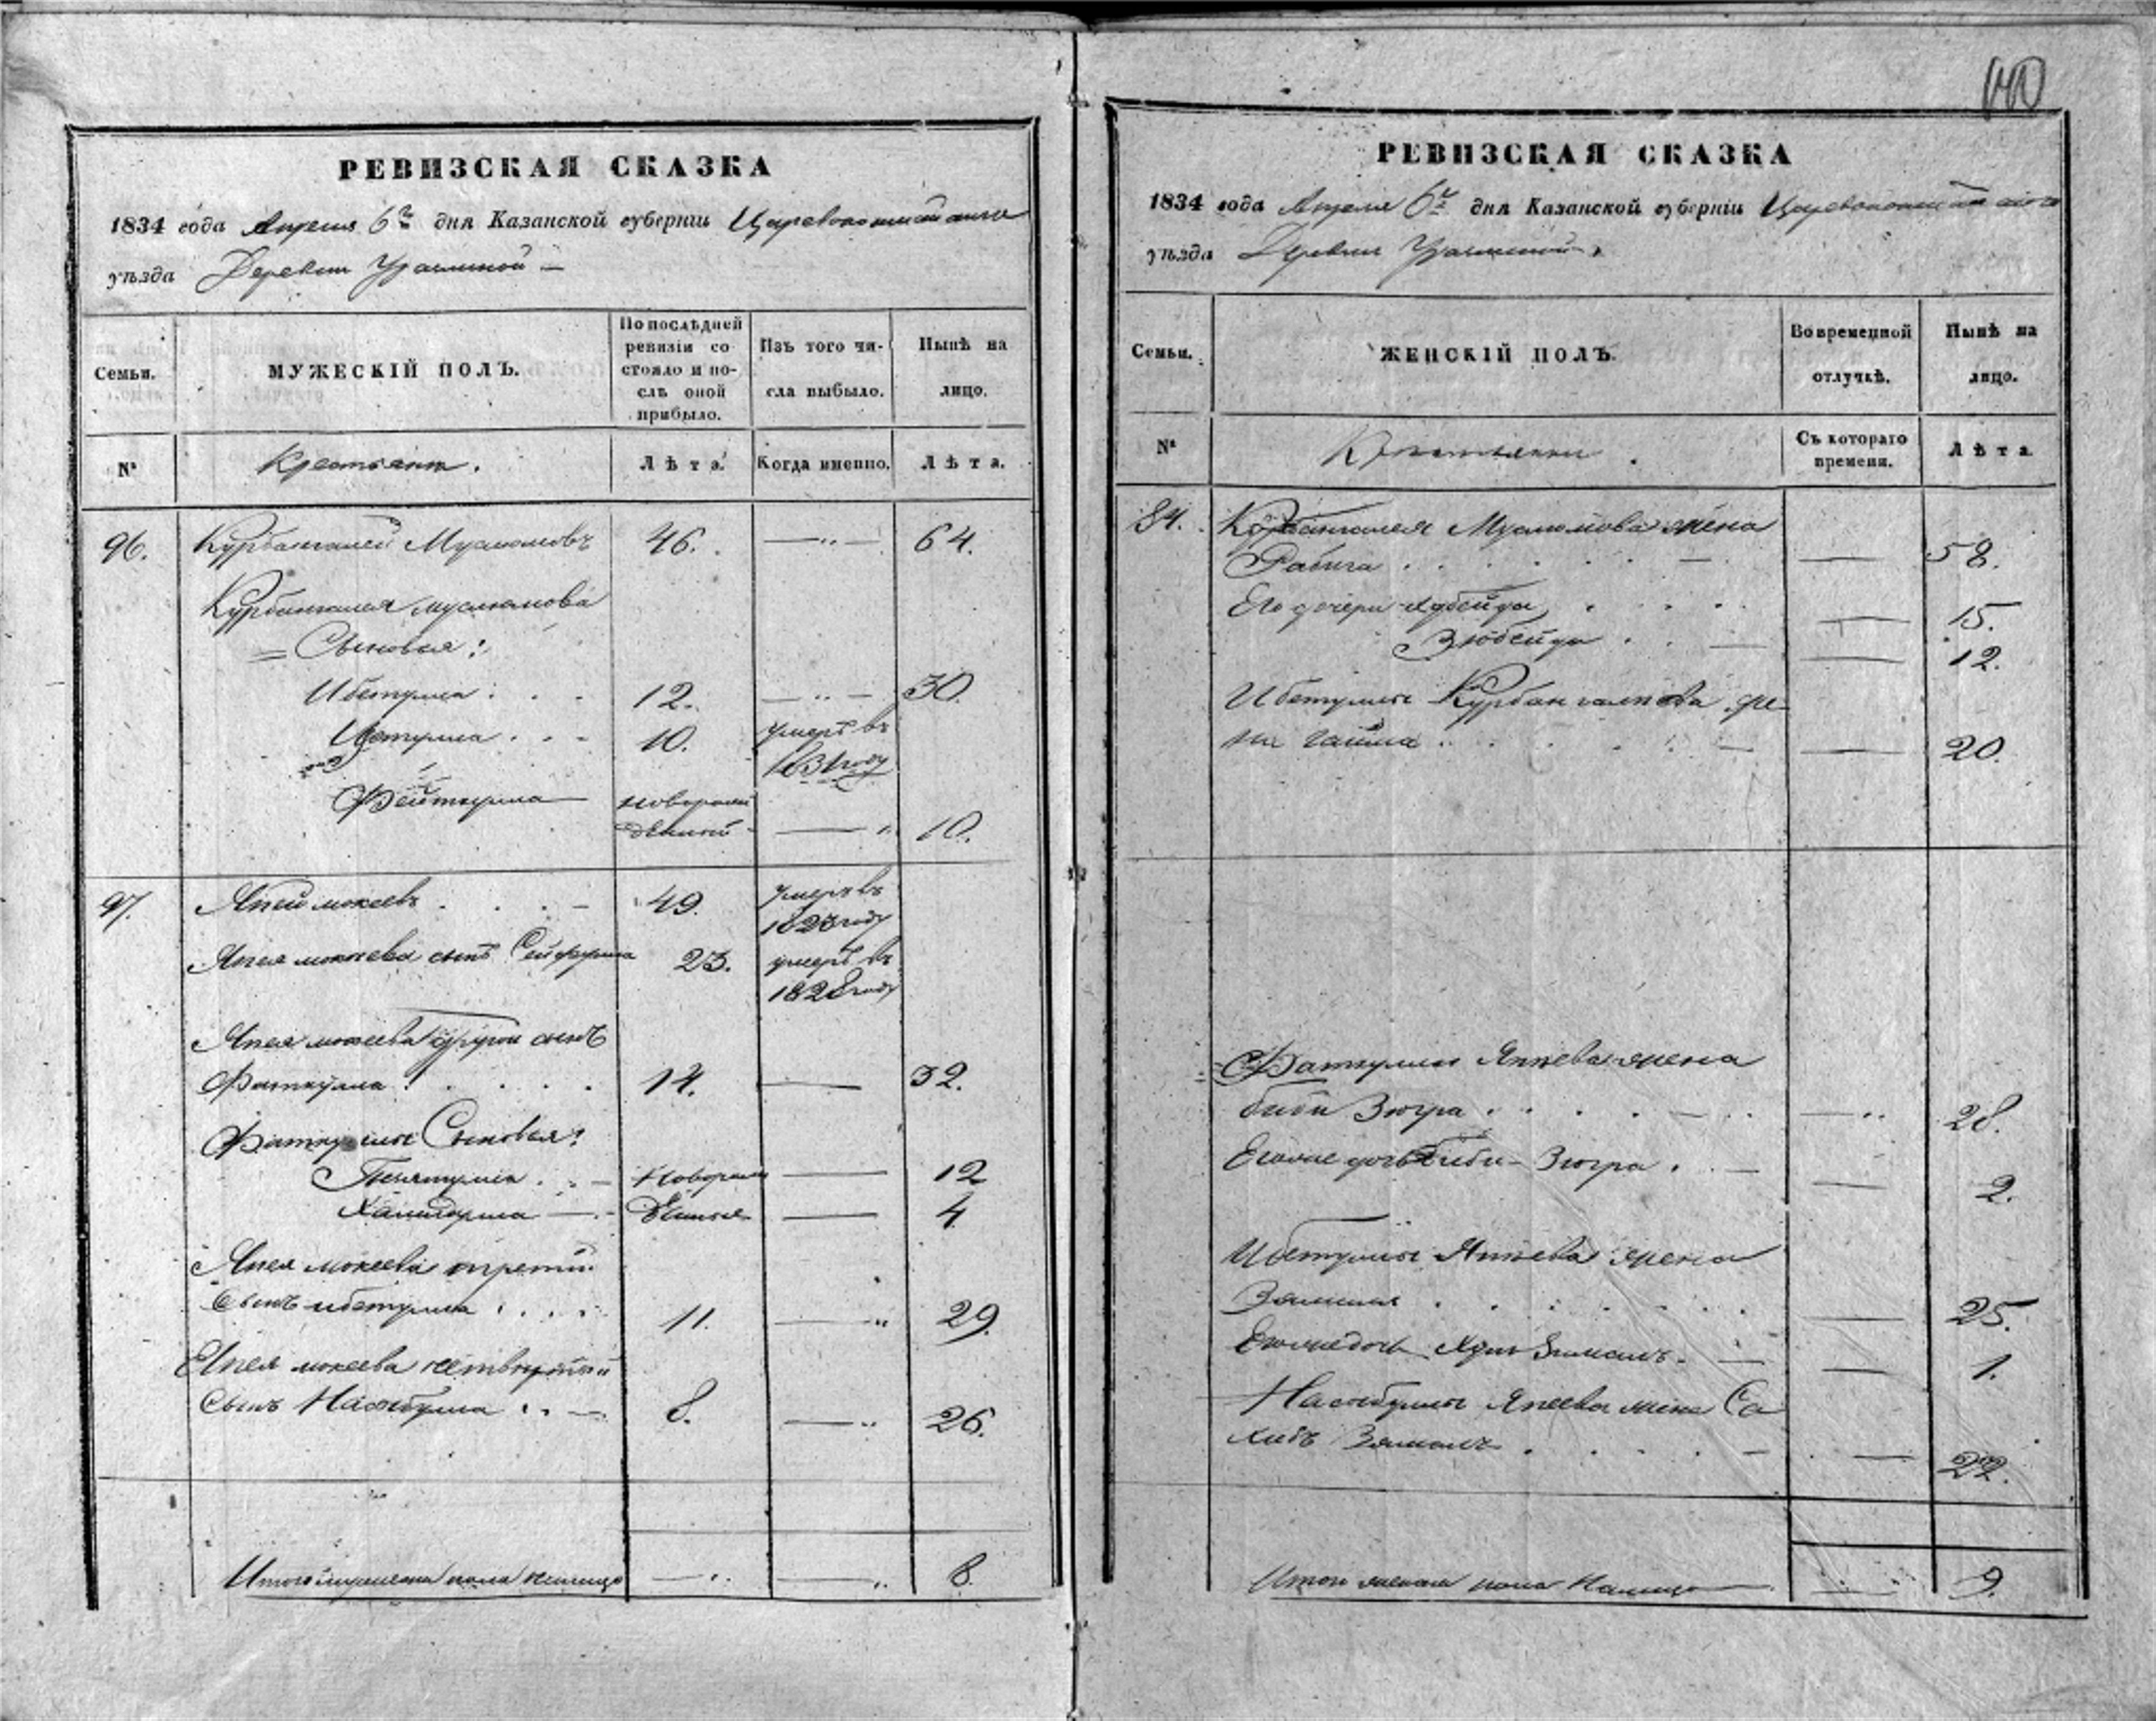 140
РЕВИЗСКАЯ СКАЗКА
1834 года Апреля 6го дня Казанской губерніи Царевококшайскаго
уѣзда Деревни Ураминой
Семьи.
МУЖЕСКІЙ ПОЛЪ.
По послѣдней
ревизіи со
стояло и по-
слѣ оной
прибыло.
Изъ того чи-
сла выбыло.
Нынѣ на
лицо.
№
Крестьяне.
Лѣта.
Когда именно.
Лѣта.
96. Курбангалей Муслюмовъ 46. 64.
Курбангалея Муслюмова
Сыновья:
Ибетулла 12. 30.
10. умеръ въ
1831 году
Фейткулла новорож
денной 10.
97. Япей мокеевъ 49. умеръ въ
1823 году
Япея мокеева сынъ Сейфулла 23. умеръ въ
1828 году
Япея мокеева другой сынъ
Фаткулла 14. 32.
Фаткуллы Сыновья:
новорож 12
денные 4
Япея мокеева третий
Сынъ ибетулла 11. 29.
Япея мокеева четвертый
Сынъ Насибулла 8. 26.
Итого мужеска пола налицо 8.
РЕВИЗСКАЯ СКАЗКА
1834 года Апреля 6го дня Казанской губерніи Царевококшайскаго
уѣзда Деревни Ураминой
Семьи.
ЖЕНСКІЙ ПОЛЪ.
Во временной
отлучкѣ.
Нынѣ на
лицо.
№
Крестьянки.
Съ котораго
времени.
Лѣта
84. Курбангалея Муслюмова жена
Рабига 58.
Его дочери 15.
Зюбейда 12.
Ибетуллы Курбангалеева же-
на 20.
Фаткуллы Япеева жена
биби Зюгра 28.
Его дочь биби-Зюгра 2.
Ибетуллы Япеева жена
25.
1.
Насибуллы Япеева жена Са
хибъ Зямалъ 22.
Итого женска пола налицо 9.